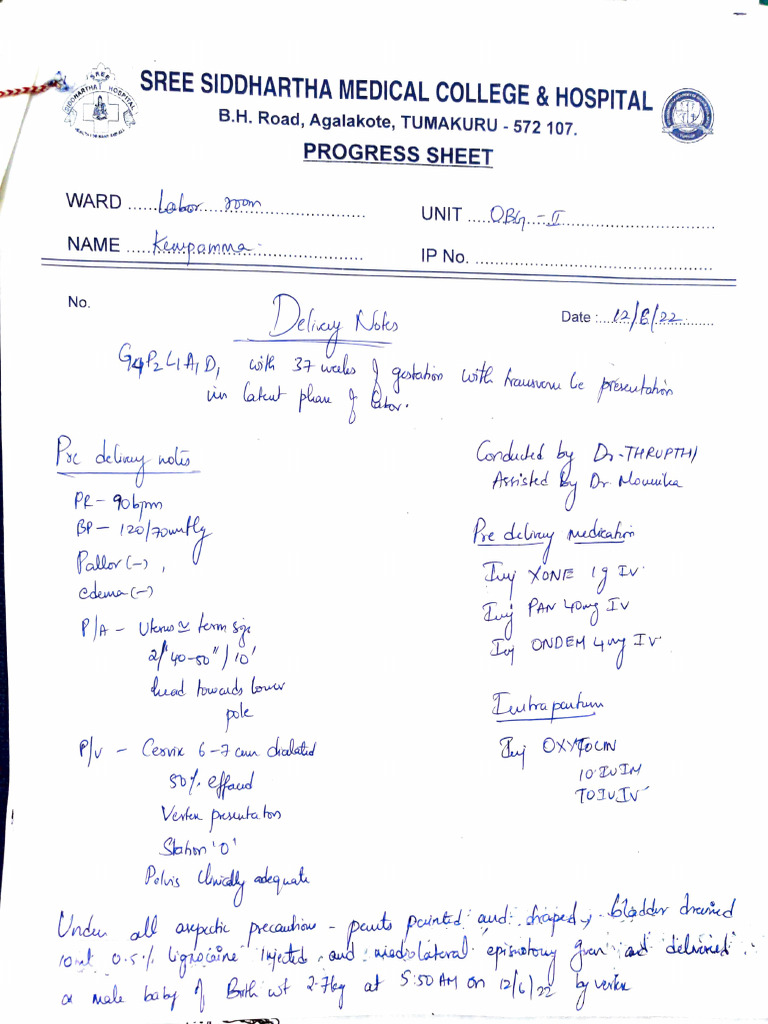 SREE SIDDHARTHA MEDICAL COLLEGE & HOSPITAL
B.H. Road, Agalakote, TUMAKURU - 572 107.
PROGRESS SHEET
WARD Labor room
UNIT OBG - II
NAME Kempamma
IP No.
No.
Delivery Notes
Date : 12/6/22
G4P2L1A1D1 with 37 weeks of gestation with transverse lie presentation
in latent phase of labor.
Pre delivery notes
PR - 90bpm
BP - 120/70mmHg
Pallor (-),
edema (-)
P/A - Uterus ≃ term size
2/"40-50"/10'
head towards lower
pole
P/V - Cervix 6-7 cm dialated
50% effaced
Vertex presentation
Station 'O'
Pelvis Clinically adequate
Conducted by Dr. THRUPTHI
Assisted by Dr. Mounika
Pre delivery medication
Inj XONE 1g IV
Inj PAN 40mg IV
Inj ONDEM 4mg IV
Intrapartum
Inj OXYTOCIN
10 IU IM
10 IU IV
Under all aseptic precaution - parts painted and draped, bladder drained
10ml 0.5% lignocaine injected and mediolateral episiotomy given and delivered
a male baby of Birth wt 2.7kg at 5:50 AM on 12/6/22 by vertex